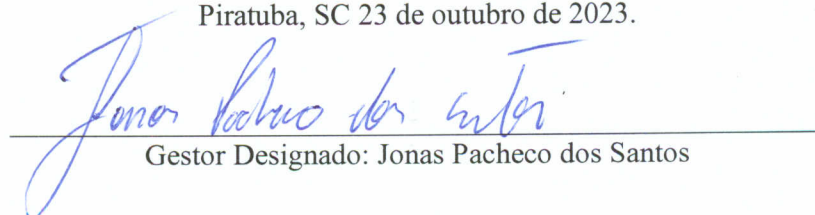 Piratuba, SC 23 de outubro de 2023.
Jonas Pacheco dos Santos
Gestor Designado: Jonas Pacheco dos Santos